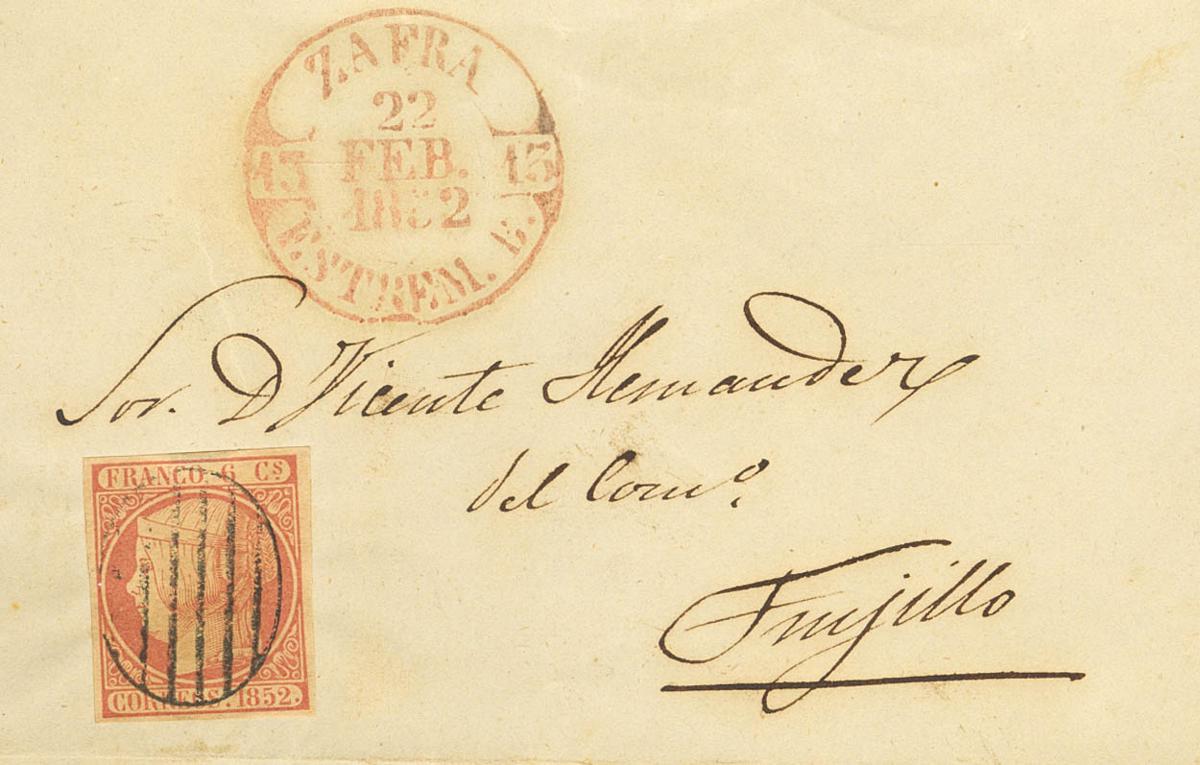 ZAFRA
22
FEB.
1852
13 13
ESTREM. B.
Sor. D Vicente Hernandez
del Com.º
Trujillo
FRANCO 6 Cs
CORREOS. 1852.